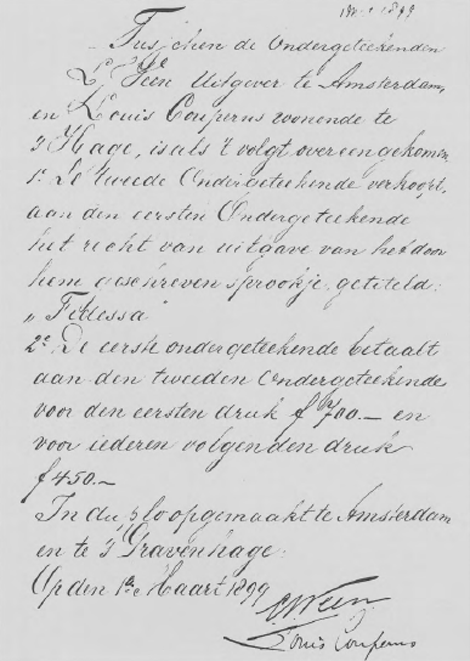 1899
Tusschen de Ondergeteekenden
L. J. Veen Uitgever te Amsterdam,
en Louis Couperus wonende te
's Hage, is als 't volgt overeengekomen
1e De tweede Ondergeteekende verkoopt,
aan den eersten Ondergeteekende
het recht van uitgave van het door
hem geschreven sprookje, getiteld:
„Fidessa"
2e De eerste ondergeteekende betaalt
aan den tweeden Ondergeteekende
voor den eersten druk f 700.— en
voor iederen volgenden druk
f 450.—
In duplo opgemaakt te Amsterdam
en te 's Gravenhage.
Op den 1en Maart 1899
LJVeen
Louis Couperus